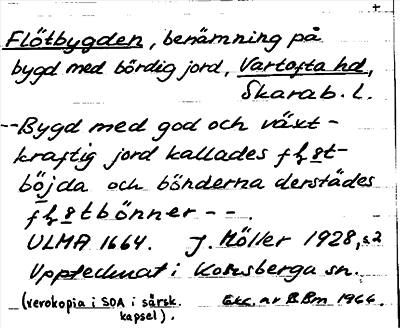 Flötbygden, benämning på
bygd med bördig jord, Vartofta hd,
Skarab. l.
--Bygd med god och växt-
kraftig jord kallades
böjda och bönderna derstädes
bönner - -.
ULMA 1664. J. Möller 1928, s 2
Upptecknat i Kornsberga sn.
(xerokopia i SOA i särsk. Exc. av BBm 1964.
kapsel).